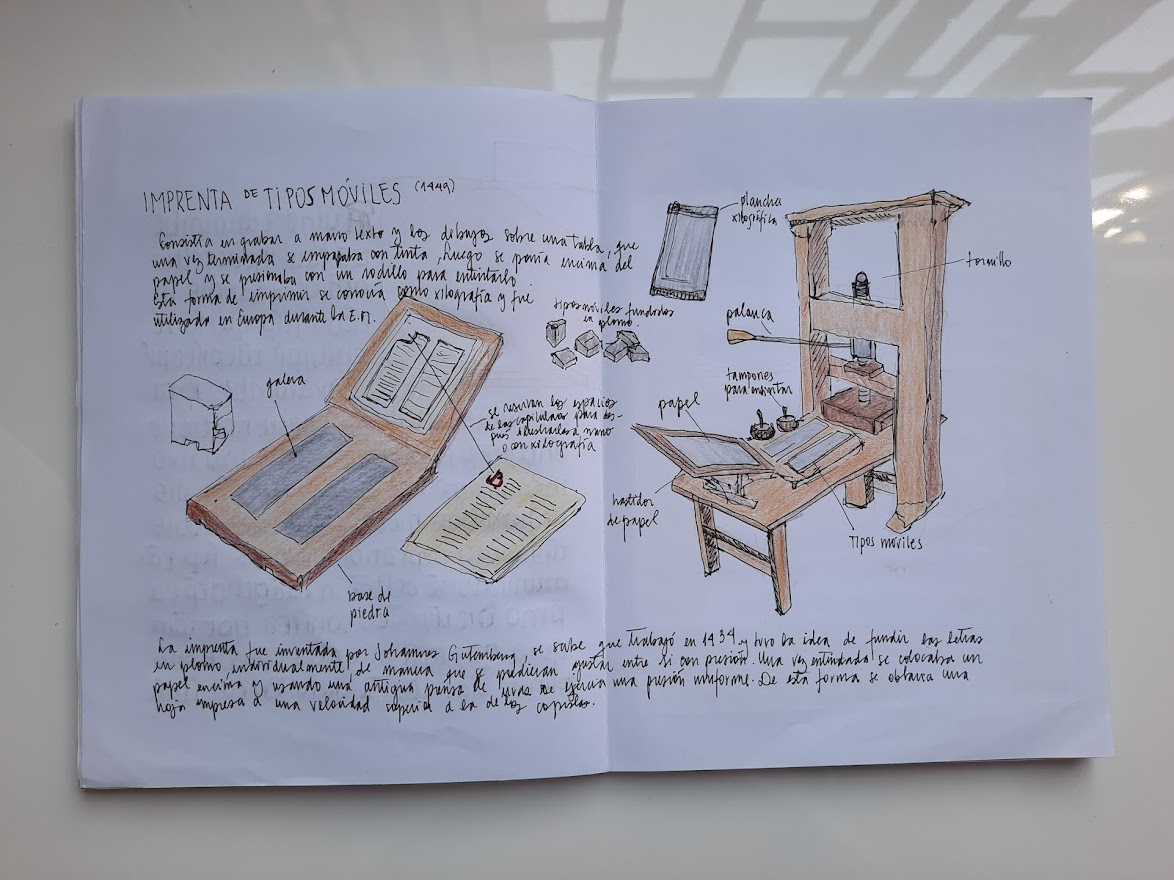 IMPRENTA DE TIPOS MÓVILES (1449)
Consistía en grabar a mano texto y los dibujos sobre una tabla, que
una vez terminada se empapaba con tinta, luego se ponía encima del
papel y se presionaba con un rodillo para entintarlo.
Esta forma de imprimir se conocía como xilografía y fue
utilizado en Europa durante la E.M.
galera
tipos móviles fundidos
en plomo.
se reservan los espacios
de las capitulares para des-
pués ilustrarlas a mano
o con xilografía
base de
piedra
plancha
xilográfica
tornillo
palanca
tampones
para entintar
papel
bastidor
de papel
Tipos móviles
La imprenta fue inventada por Johannes Gutemberg, se sabe que trabajó en 1434 y tuvo la idea de fundir las letras
en plomo, individualmente, de manera que se pudieran ajustar entre sí con presión. Una vez entintado se colocaba un
papel encima y usando una antigua prensa de se ejercía una presión uniforme. De esta forma se obtenía una
hoja impresa a una velocidad superior a la de los copistas.